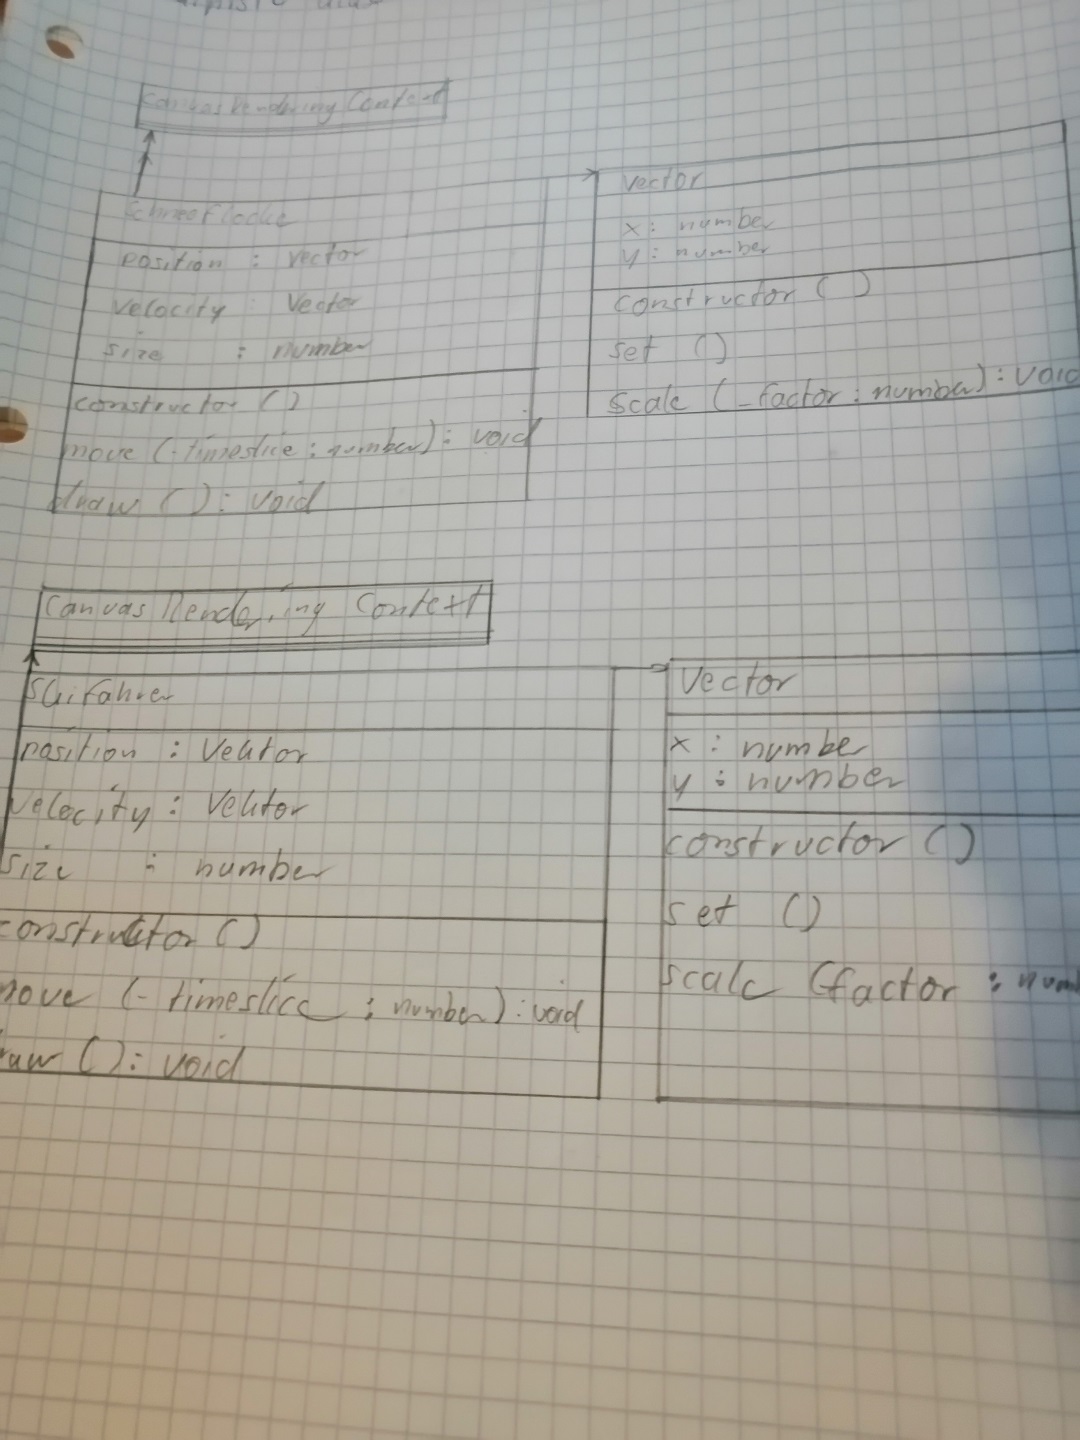 Canvas Rendering Context
Schneeflocke
position : Vector
Velocity : Vector
size : number
constructor ()
move (-timeslice : number) : void
draw () : void
Vector
x : number
y : number
constructor ()
set ()
scale (-factor : number) : void
Canvas Rendering Context
Skifahrer
position : Vektor
velocity : Vektor
size : number
constructor ()
move (- timeslice : number) : void
raw () : void
Vector
x : numbe
y : number
constructor ()
set ()
scale (factor : num